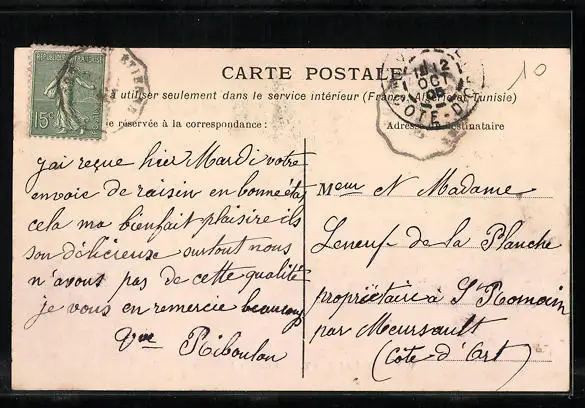 REPUBLIQUE FRANÇAISE
15c
12
OCT
COTE-D'OR
10
CARTE POSTALE
à utiliser seulement dans le service intérieur (France, Algérie et Tunisie)
e réservée à la correspondance :
Adresse destinataire
j'ai reçue hier Mardi votre
envoie de raisin en bonne état
cela ma bienfait plaisire ils
son délicieuse surtout nous
n'avons pas de cette qualité
je vous en remercie beaucoup
Vve Riboulon
Meur N Madame
Leneuf-de la Planche
propriétaire à St Romain
par Meursault
(Côte-d'Art)